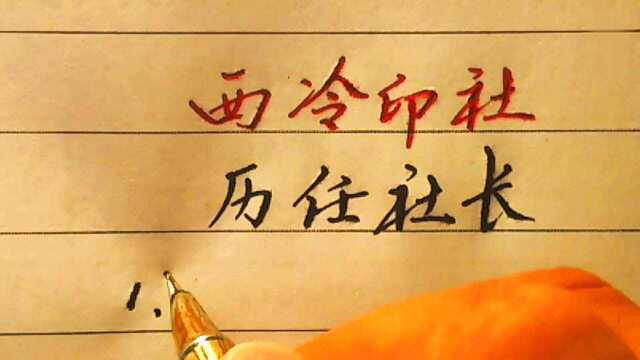 西冷印社
历任社长
1.